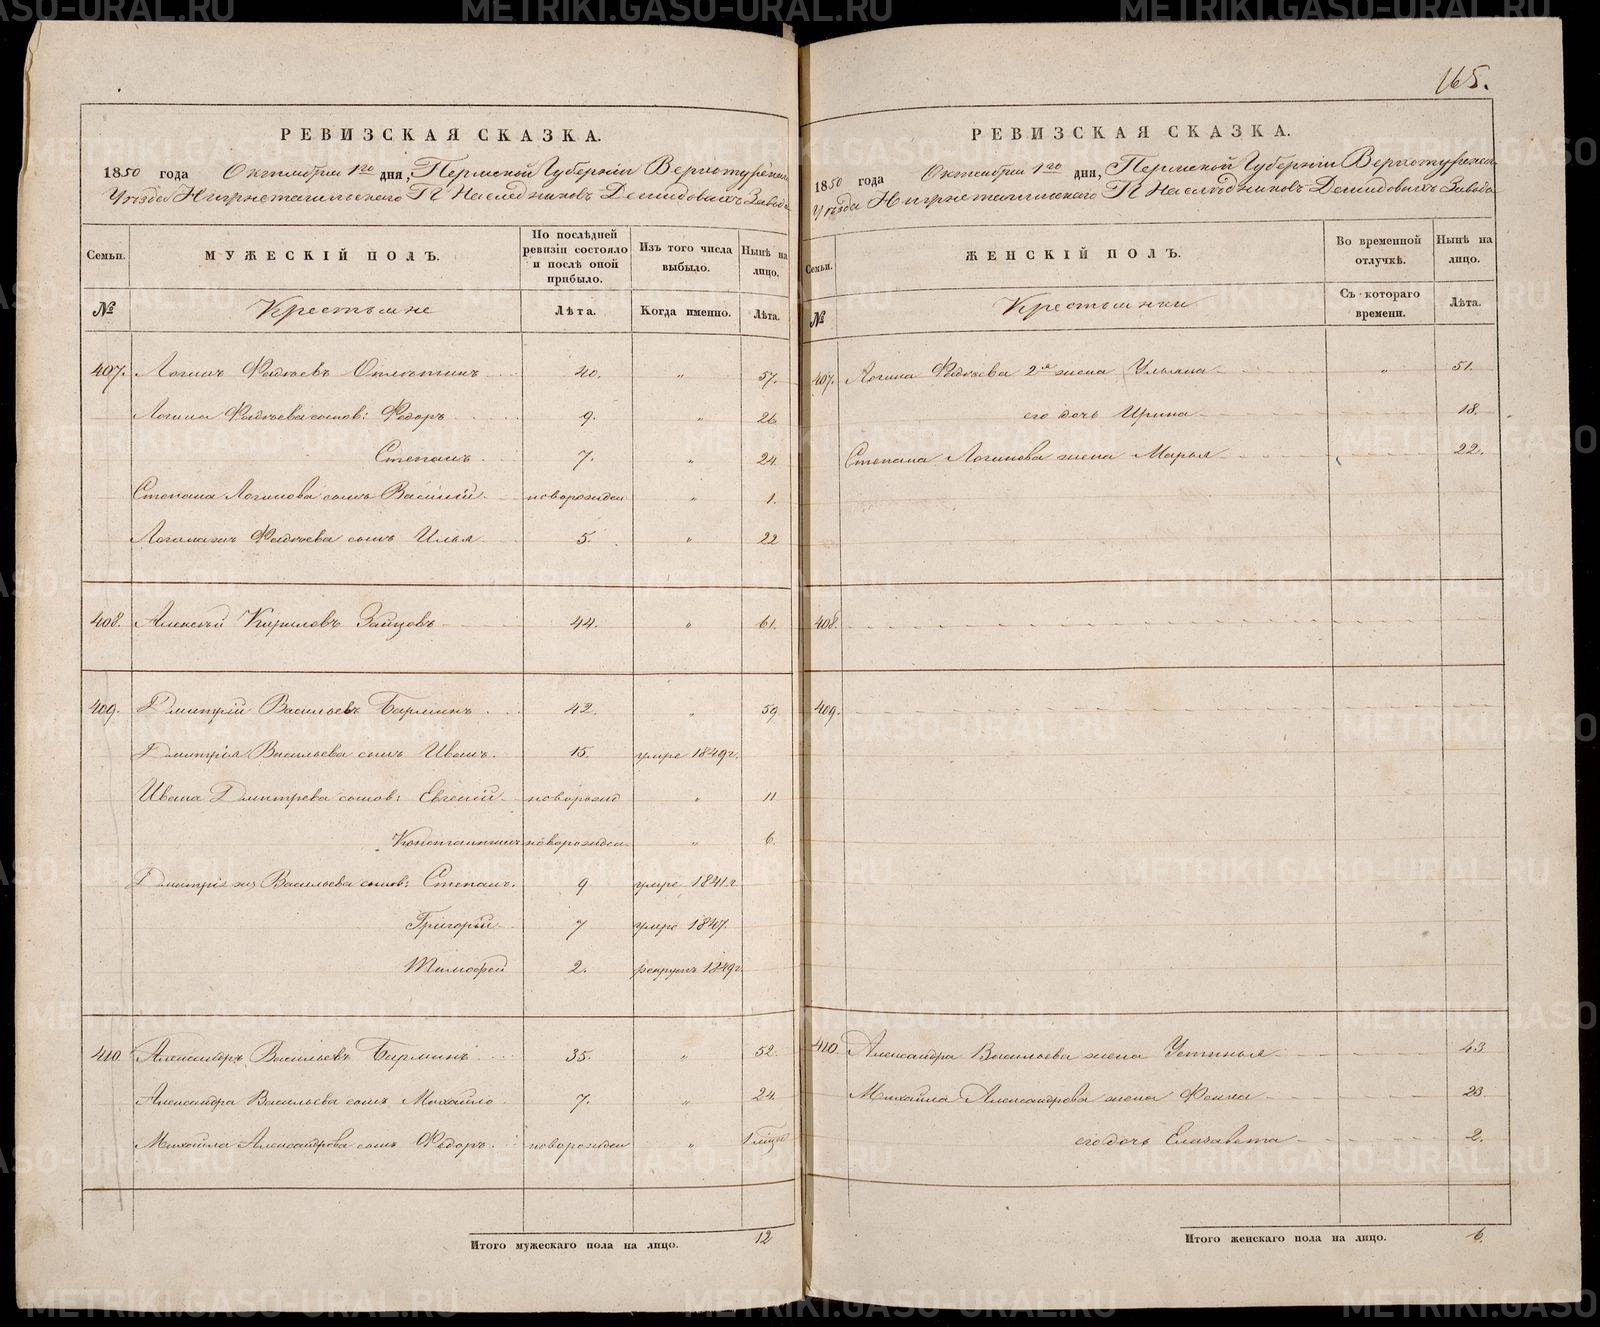 165.
РЕВИЗСКАЯ СКАЗКА.
1850 года Октября 1го дня, Пермской Губерніи Верхотурскаго
Уѣзда Нижнетагильскаго Г. Наслѣдниковъ Демидовыхъ Завода
Семьи. МУЖЕСКІЙ ПОЛЪ. По послѣдней ревизіи состояло и послѣ оной прибыло. Изъ того числа выбыло. Нынѣ на лицо.
№ Крестьяне Лѣта. Когда именно. Лѣта.
407. Логинъ Фадѣевъ 40. „ 57.
Логина Фадѣева сыновья: Федоръ 9. „ 26
Степанъ 7. „ 24.
Степана Логинова сынъ Василій новорожден „ 1.
Логина жъ Фадѣева сынъ Илья 5. „ 22
408. Алексѣй Кириловъ Зайцовъ 44. „ 61.
409. Дмитрій Васильевъ Барминъ 42. „ 59
Дмитрія Васильева сынъ Иванъ. 15. умре 1849 г.
Ивана Дмитрева сынов: Евгеній новорожд „ 11
Константинъ новорожден „ 6.
Дмитрія жъ Васильева сынов: Степанъ. 9 умре 1841 г
Григорій 7 умре 1847.
Тимофей 2. рекрутъ 1849 г.
410 Александръ Васильевъ Барминъ 35. „ 52.
Александра Васильева сынъ Михайло 7. „ 24.
Михайла Александрова сынъ Федоръ новорожден „ 1
Итого мужескаго пола на лицо. 12
РЕВИЗСКАЯ СКАЗКА.
1850 года Октября 1го дня, Пермской Губерніи Верхотурскаго
Уѣзда Нижнетагильскаго Г. Наслѣдниковъ Демидовыхъ Завода
Семьи. ЖЕНСКІЙ ПОЛЪ. Во временной отлучкѣ. Нынѣ на лицо.
№ Крестьянки Съ котораго времени. Лѣта.
407. Логина Фадѣева 2я жена Ульяна „ 51.
его дочь Ирина 18.
Степана Логинова жена Марья 22.
408.
409.
410. Александра Васильева жена Устинья 43
Михайла Александрова жена Фекла 23.
его дочь Елизавета 2.
Итого женскаго пола на лицо. 6.
METRIKI.GASO-URAL.RU